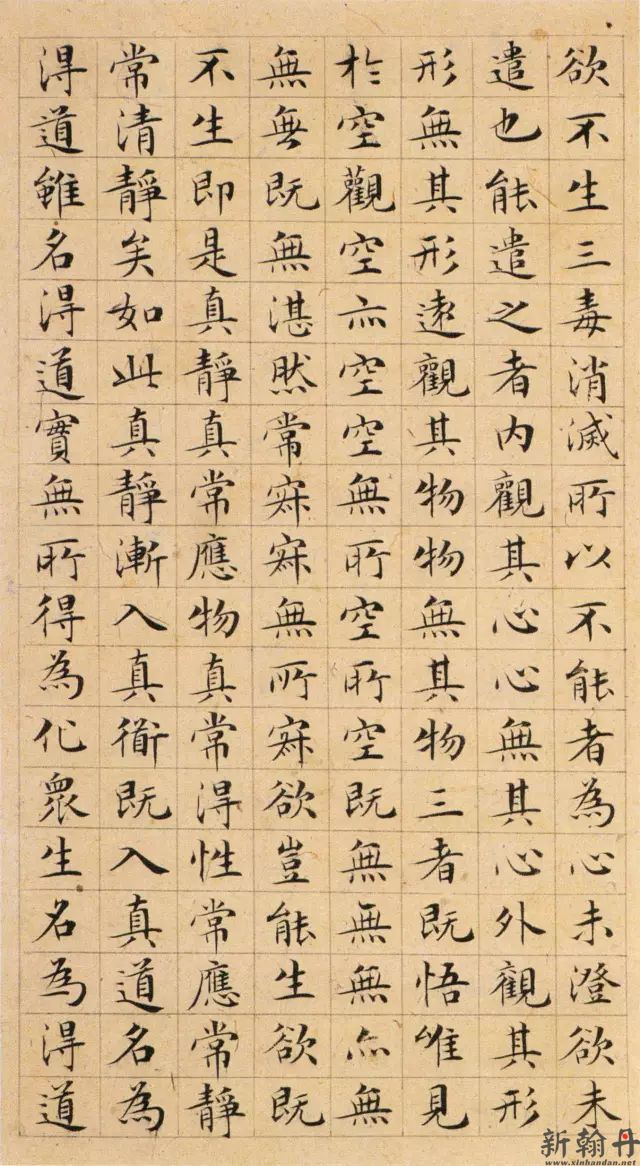 欲不生三毒消滅所以不能者為心未澄欲未
遣也能遣之者内觀其心心無其心外觀其形
形無其形遠觀其物物無其物三者既悟唯見
於空觀空亦空空無所空所空既無無無亦無
無無既無湛然常寂寂無所寂欲豈能生欲既
不生即是真靜真常應物真常得性常應常靜
常清靜矣如此真靜漸入真衜既入真道名為
得道雖名得道實無所得為化衆生名為得道
新翰丹
www.xinhandan.net